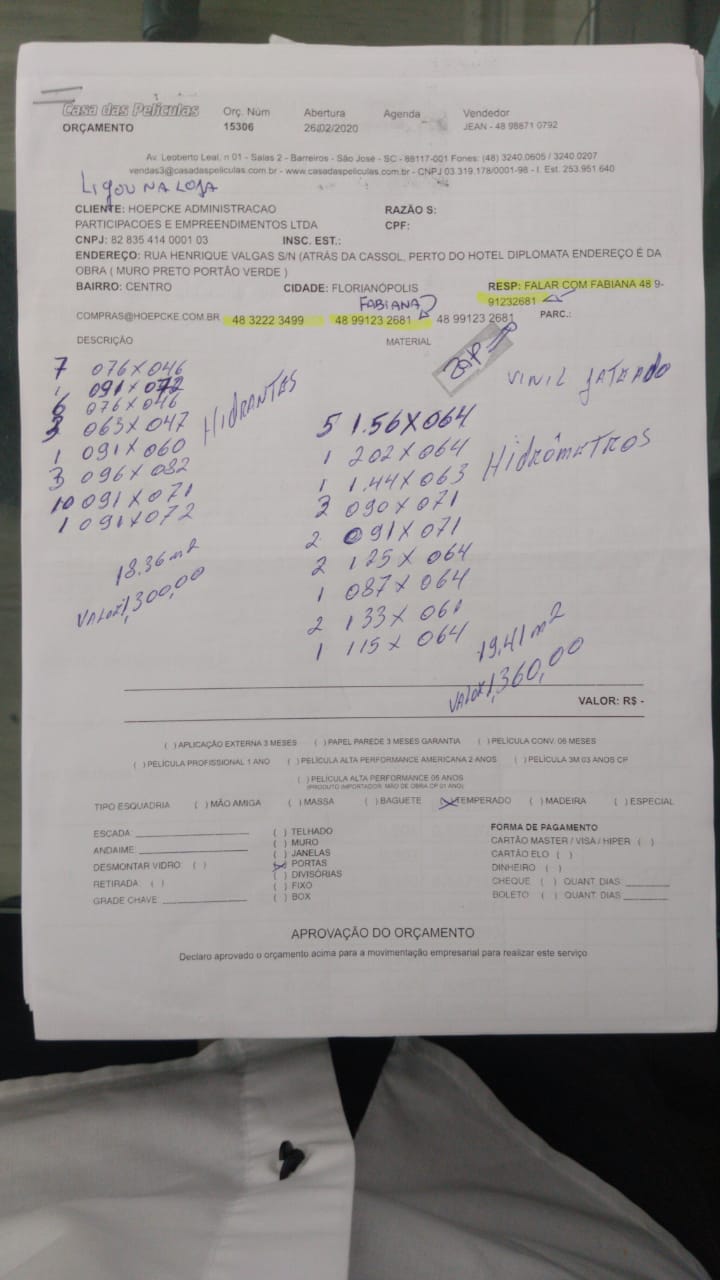 Casa das Películas
ORÇAMENTO
Orç. Núm
15306
Abertura
26/02/2020
Agenda
Vendedor
JEAN - 48 98871 0792
Av. Leoberto Leal, n 01 - Salas 2 - Barreiros - São José - SC - 88117-001 Fones: (48) 3240.0605 / 3240.0207
vendas3@casadaspeliculas.com.br - www.casadaspeliculas.com.br - CNPJ 03.319.178/0001-98 - I. Est. 253.951.640
LIGOU NA LOJA
CLIENTE: HOEPCKE ADMINISTRACAO
PARTICIPACOES E EMPREENDIMENTOS LTDA
RAZÃO S:
CNPJ: 82 835 414 0001 03
INSC. EST.:
CPF:
ENDEREÇO: RUA HENRIQUE VALGAS S/N (ATRÁS DA CASSOL, PERTO DO HOTEL DIPLOMATA ENDEREÇO É DA
OBRA ( MURO PRETO PORTÃO VERDE )
BAIRRO: CENTRO
CIDADE: FLORIANÓPOLIS
RESP: FALAR COM FABIANA 48 9-
91232681
FABIANA
COMPRAS@HOEPCKE.COM.BR
48 3222 3499
48 99123 2681
48 99123 2681
PARC.:
DESCRIÇÃO
MATERIAL
VINIL JATEADO
7 076 X 046
1 091 X 072
6 076 X 046
3 063 X 047
1 091 X 060
3 096 X 082
10 091 X 071
1 091 X 072
HIDRANTES
18.36 m2
VALOR 1,300,00
5 1.56 X 064
1 202 X 064
1 1.44 X 063
3 090 X 071
2 091 X 071
2 125 X 064
1 087 X 064
2 133 X
1 115 X 064
HIDRÔMETROS
19,41 m2
VALOR 1,360,00
VALOR: R$ -
( ) APLICAÇÃO EXTERNA 3 MESES ( ) PAPEL PAREDE 3 MESES GARANTIA ( ) PELÍCULA CONV. 06 MESES
( ) PELÍCULA PROFISSIONAL 1 ANO ( ) PELÍCULA ALTA PERFORMANCE AMERICANA 2 ANOS ( ) PELÍCULA 3M 03 ANOS CP
( ) PELÍCULA ALTA PERFORMANCE 05 ANOS
(PRODUTO IMPORTADOR: MÃO DE OBRA CP 01 ANO)
TIPO ESQUADRIA ( ) MÃO AMIGA ( ) MASSA ( ) BAGUETE (X) TEMPERADO ( ) MADEIRA ( ) ESPECIAL
ESCADA:
ANDAIME:
DESMONTAR VIDRO: ( )
RETIRADA: ( )
GRADE CHAVE
( ) TELHADO
( ) MURO
( ) JANELAS
(X) PORTAS
( ) DIVISÓRIAS
( ) FIXO
( ) BOX
FORMA DE PAGAMENTO
CARTÃO MASTER / VISA / HIPER ( )
CARTÃO ELO ( )
DINHEIRO ( )
CHEQUE ( ) QUANT. DIAS:
BOLETO ( ) QUANT. DIAS:
APROVAÇÃO DO ORÇAMENTO
Declaro aprovado o orçamento acima para a movimentação empresarial para realizar este serviço